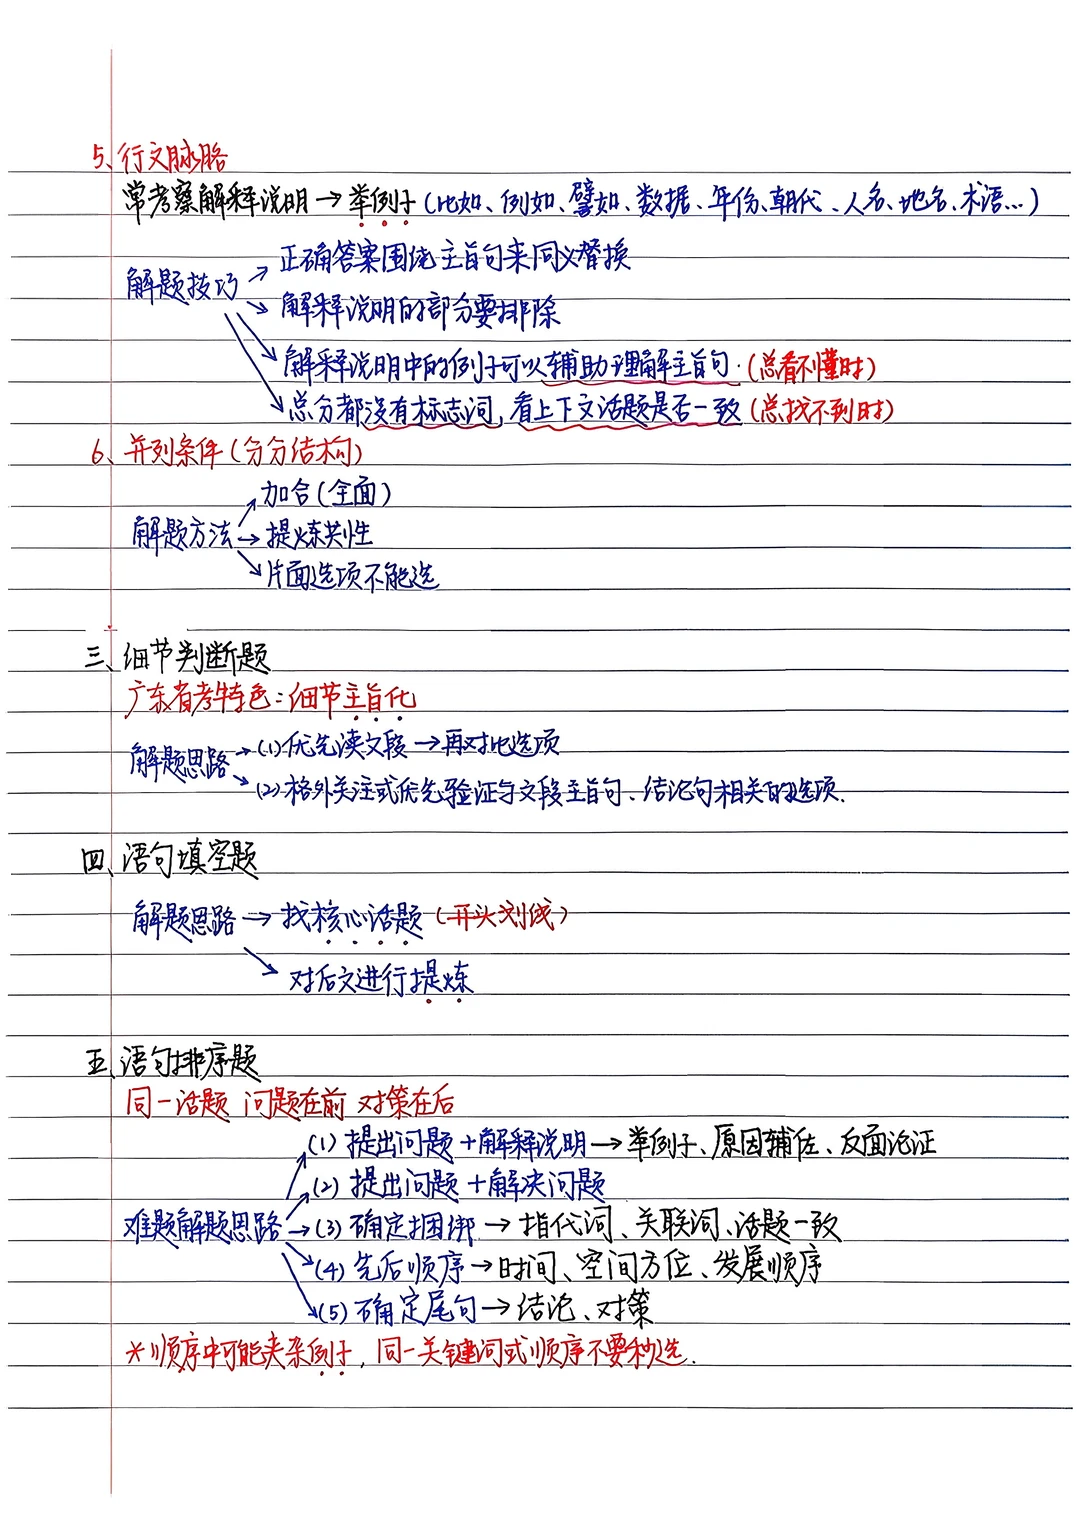 5、行文脉络
常考察解释说明→举例子(比如、例如、譬如、数据、年份、朝代、人名、地名、术语...)
解题技巧→正确答案围绕主旨句来同义替换
→解释说明的部分要排除
→解释说明中的例子可以辅助理解主旨句.(总看不懂时)
→总分都没有标志词,看上下文话题是否一致(总找不到时)
6、并列条件(分分结构)
解题方法→加合(全面)
→提炼共性
→片面选项不能选
三、细节判断题
广东省考特色:细节主旨化
解题思路→(1)优先读文段→再对比选项
→(2)格外关注或优先验证与文段主旨句、结论句相关的选项.
四、语句填空题
解题思路→找核心话题(开头划线)
→对后文进行提炼
五、语句排序题
同一话题 问题在前 对策在后
难题解题思路→(1)提出问题+解释说明→举例子、原因辅佐、反面论证
→(2)提出问题+解决问题
→(3)确定捆绑→指代词、关联词、话题一致
→(4)先后顺序→时间、空间方位、发展顺序
→(5)确定尾句→结论、对策
*顺序中可能夹杂例子,同一关键词或顺序不要秒选.